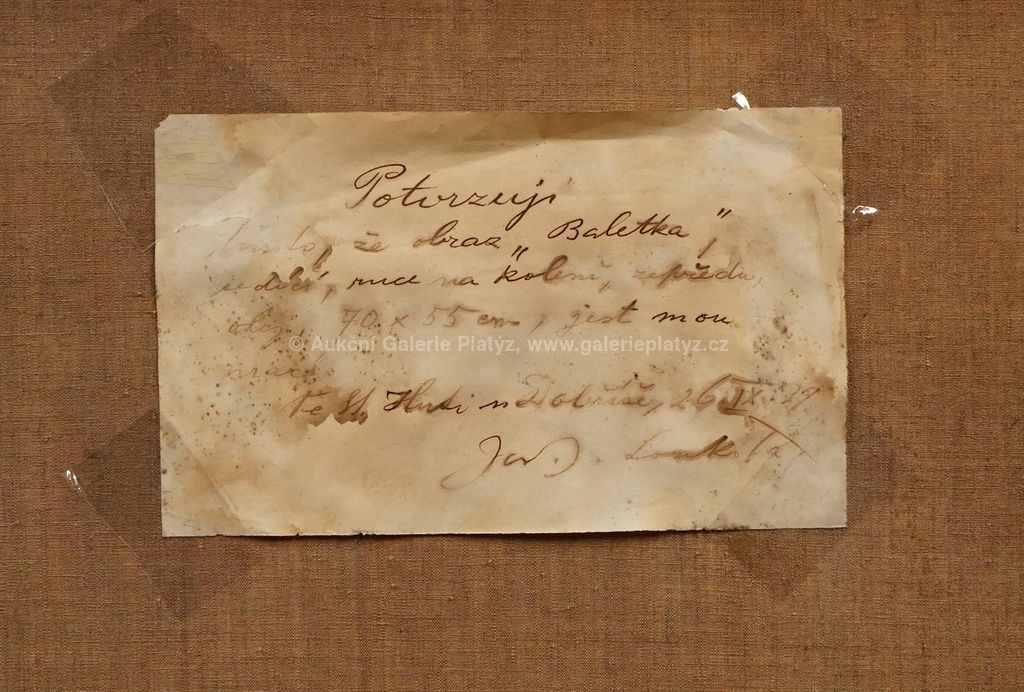 Potvrzuji
tímto, že obraz „Baletka",
sedící, ruce na koleně, zepředu,
olej, 70 x 55 cm, jest mou
© Aukční Galerie Platýz, www.galerieplatyz.cz
prací.
Ve St. Huti u Dobříše, 26 IX
Jar. Loukota